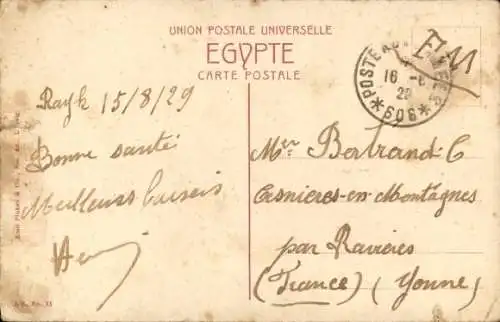 UNION POSTALE UNIVERSELLE
EGYPTE
CARTE POSTALE
F M
*POSTE AUX ARMÉES* 608
16 -8
29
Rayk 15/8/29
Bonne santé
Meilleurs baisers
Mer Bertrand-C
Cesnieres-en-Montagnes
par Ravières
(France) (Yonne)